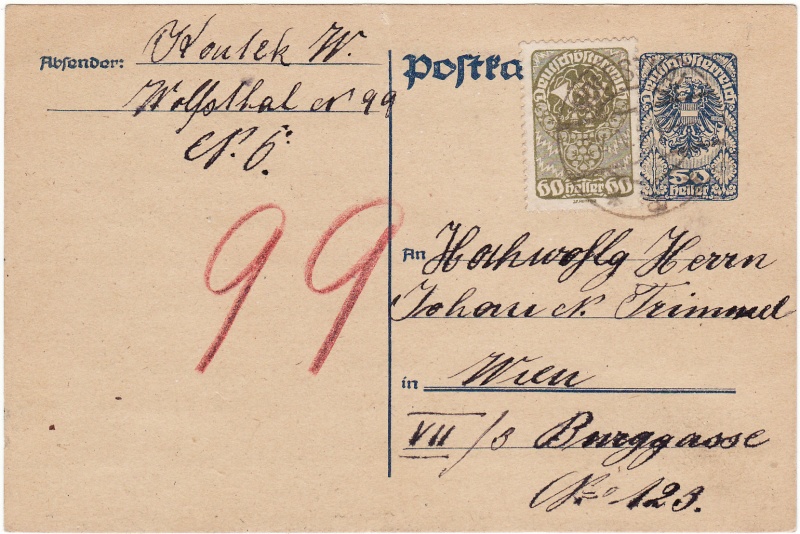 Absender: Koutek W.
Wolfsthal No 99
N. Ö.
Postka
Deutschösterreich
60 heller 60
Deutschösterreich
50
heller
99
An Hochwohlg Herrn
Johann N. Trimmel
in Wien
VII/3 Burggasse
No 123.